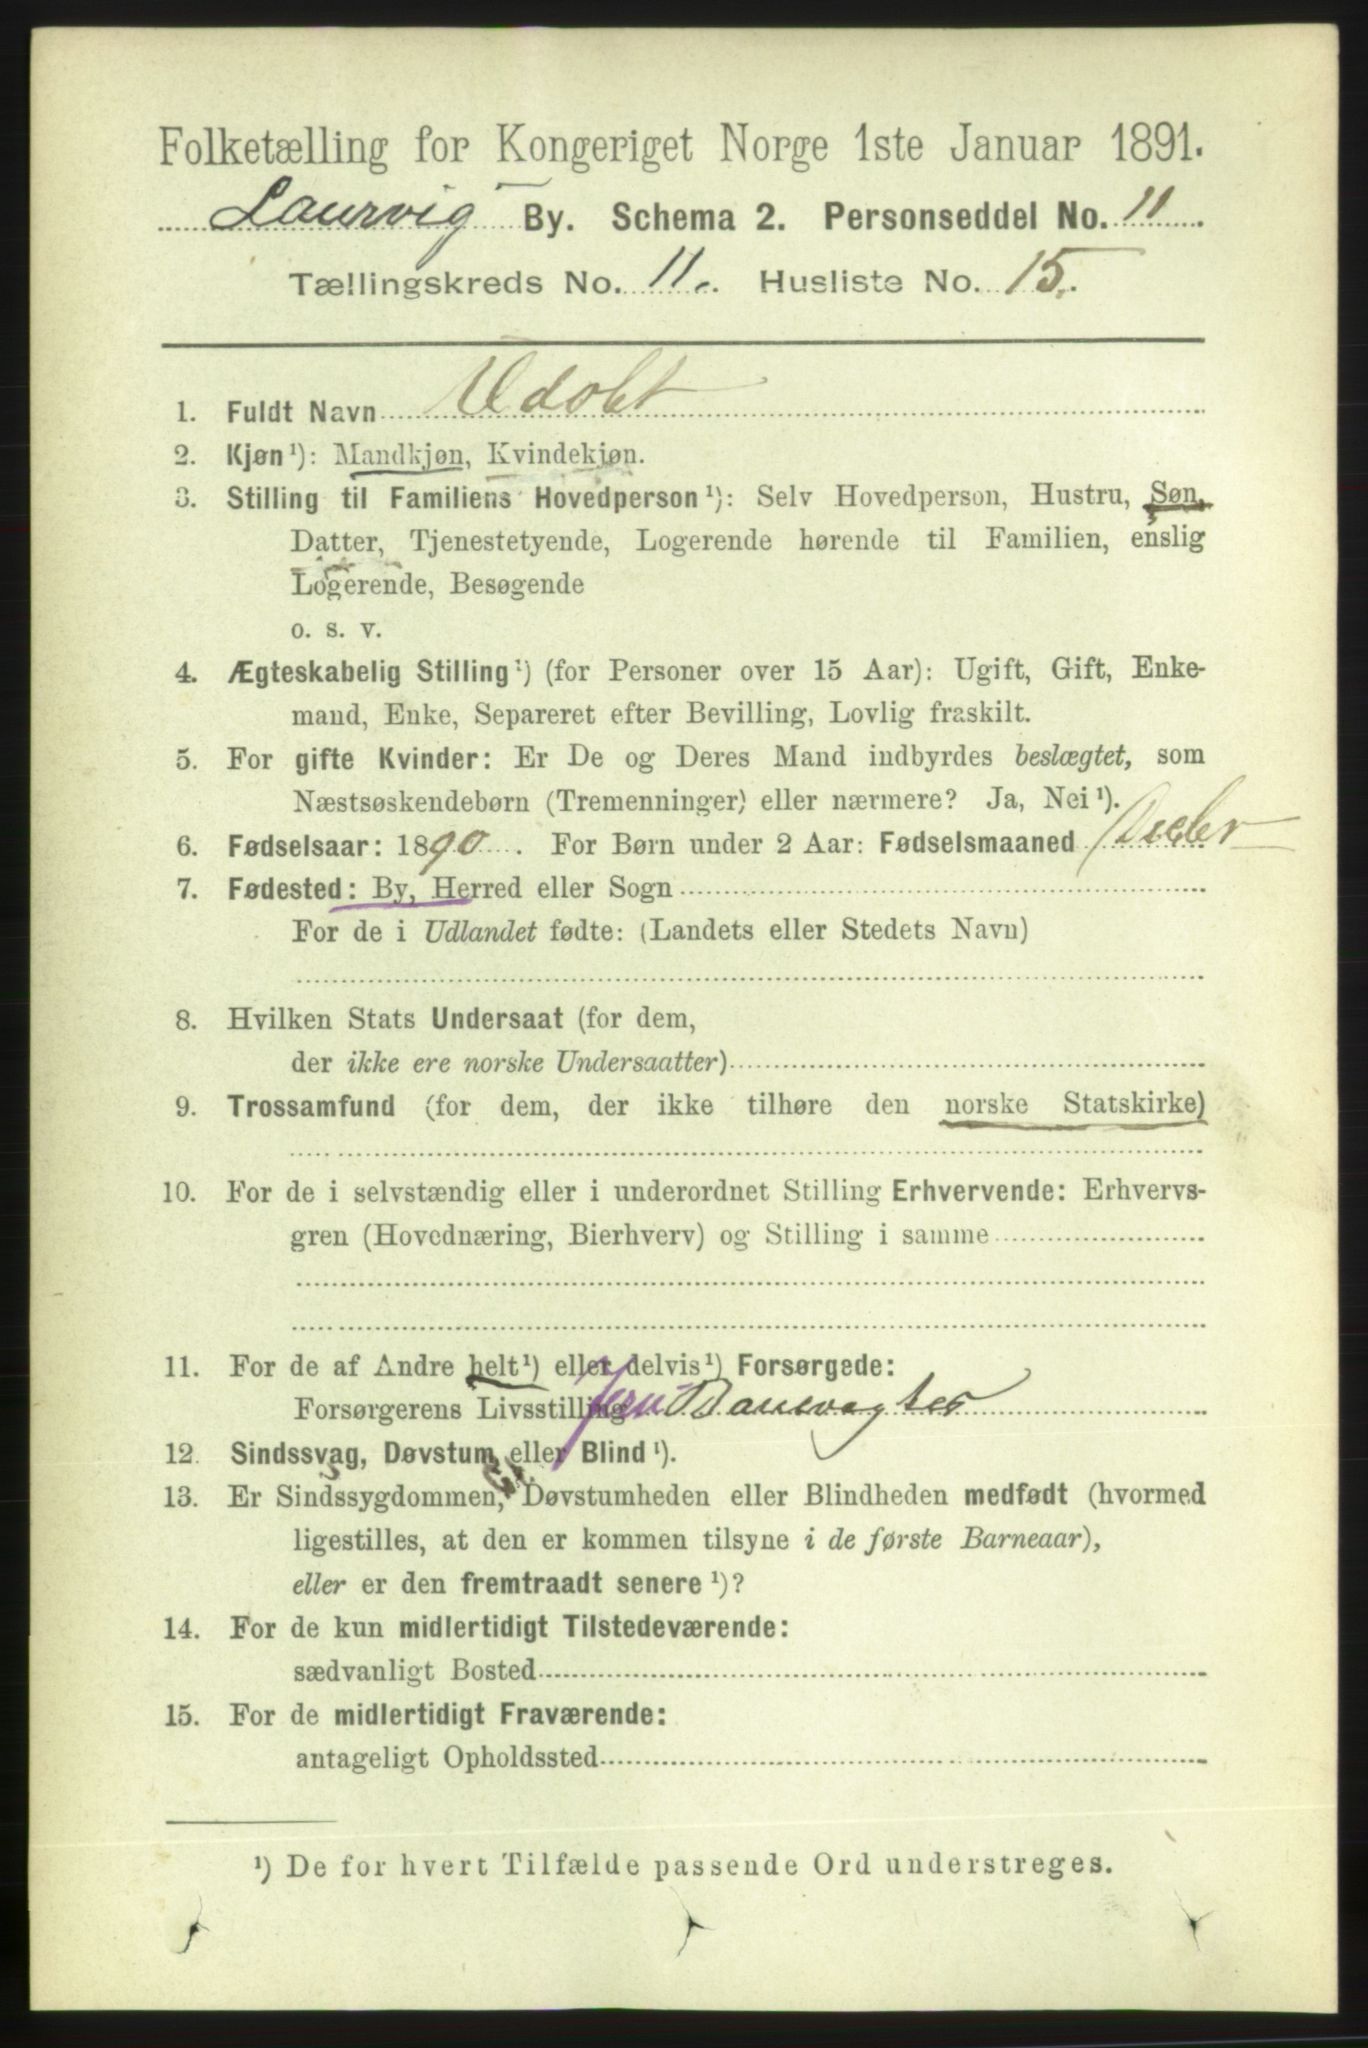 Folketælling for Kongeriget Norge 1ste Januar 1891.
Laurvig By. Schema 2. Personseddel No. 11
Tællingskreds No. 11. Husliste No. 15.
1. Fuldt Navn
2. Kjøn ¹): Mandkjøn, Kvindekjøn.
3. Stilling til Familiens Hovedperson ¹): Selv Hovedperson, Hustru, Søn,
Datter, Tjenestetyende, Logerende hørende til Familien, enslig
Logerende, Besøgende
o. s. v.
4. Ægteskabelig Stilling ¹) (for Personer over 15 Aar): Ugift, Gift, Enke-
mand, Enke, Separeret efter Bevilling, Lovlig fraskilt.
5. For gifte Kvinder: Er De og Deres Mand indbyrdes beslægtet, som
Næstsøskendebørn (Tremenninger) eller nærmere? Ja, Nei ¹).
6. Fødselsaar: 1890. For Børn under 2 Aar: Fødselsmaaned
7. Fødested: By, Herred eller Sogn
For de i Udlandet fødte: (Landets eller Stedets Navn)
8. Hvilken Stats Undersaat (for dem,
der ikke ere norske Undersaatter)
9. Trossamfund (for dem, der ikke tilhøre den norske Statskirke)
10. For de i selvstændig eller i underordnet Stilling Erhvervende: Erhvervs-
gren (Hovednæring, Bierhverv) og Stilling i samme
11. For de af Andre helt ¹) eller delvis ¹) Forsørgede:
Forsørgerens Livsstilling Jern Banevagter
12. Sindssvag, Døvstum eller Blind ¹).
13. Er Sindssygdommen, Døvstumheden eller Blindheden medfødt (hvormed
ligestilles, at den er kommen tilsyne i de første Barneaar),
eller er den fremtraadt senere ¹)?
14. For de kun midlertidigt Tilstedeværende:
sædvanligt Bosted
15. For de midlertidigt Fraværende:
antageligt Opholdssted
¹) De for hvert Tilfælde passende Ord understreges.